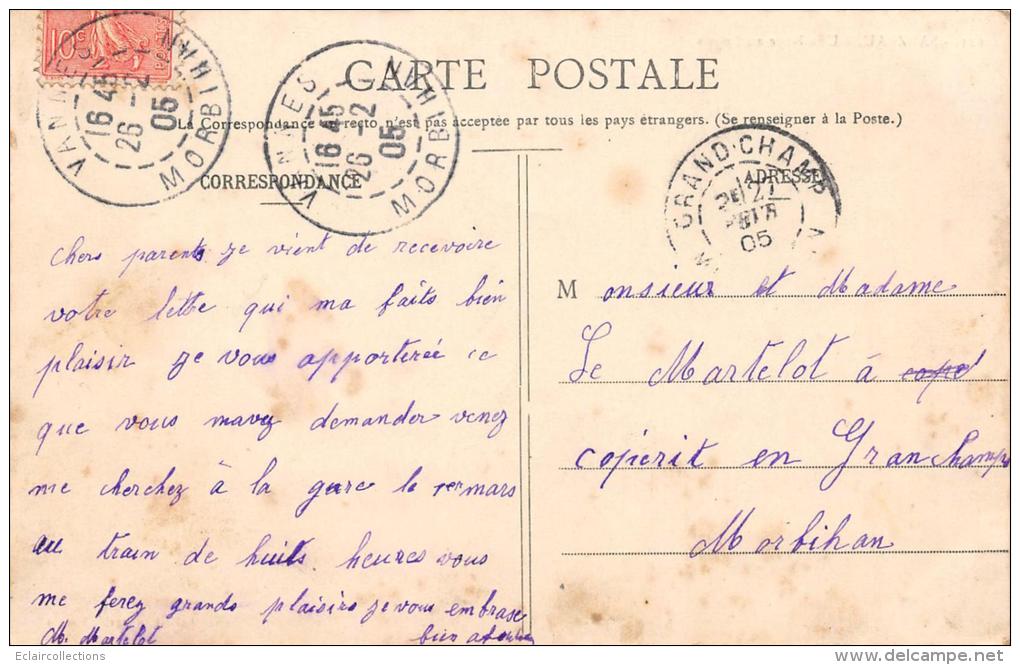 10c
VANNES
16 45
26 -2
05
MORBIHAN
VANNES
16 45
26 -2
05
MORBIHAN
CARTE POSTALE
La Correspondance au recto n'est pas acceptée par tous les pays étrangers. (Se renseigner à la Poste.)
GRAND-CHAMP
27
05
CORRESPONDANCE
chers parents je vient de recevoire
votre lettre qui ma faits bien
plaisir je vous apporterée ce
que vous mavez demander venez
me cherchez à la gare le 1er mars
au train de huits heures vous
me ferez grands plaisirs je vous embrase
M. Martelot bien
ADRESSE
Monsieur et Madame
Le Martelot à copé
copérit en Granchamps
Morbihan
Eclaircollections
www.delcampe.net